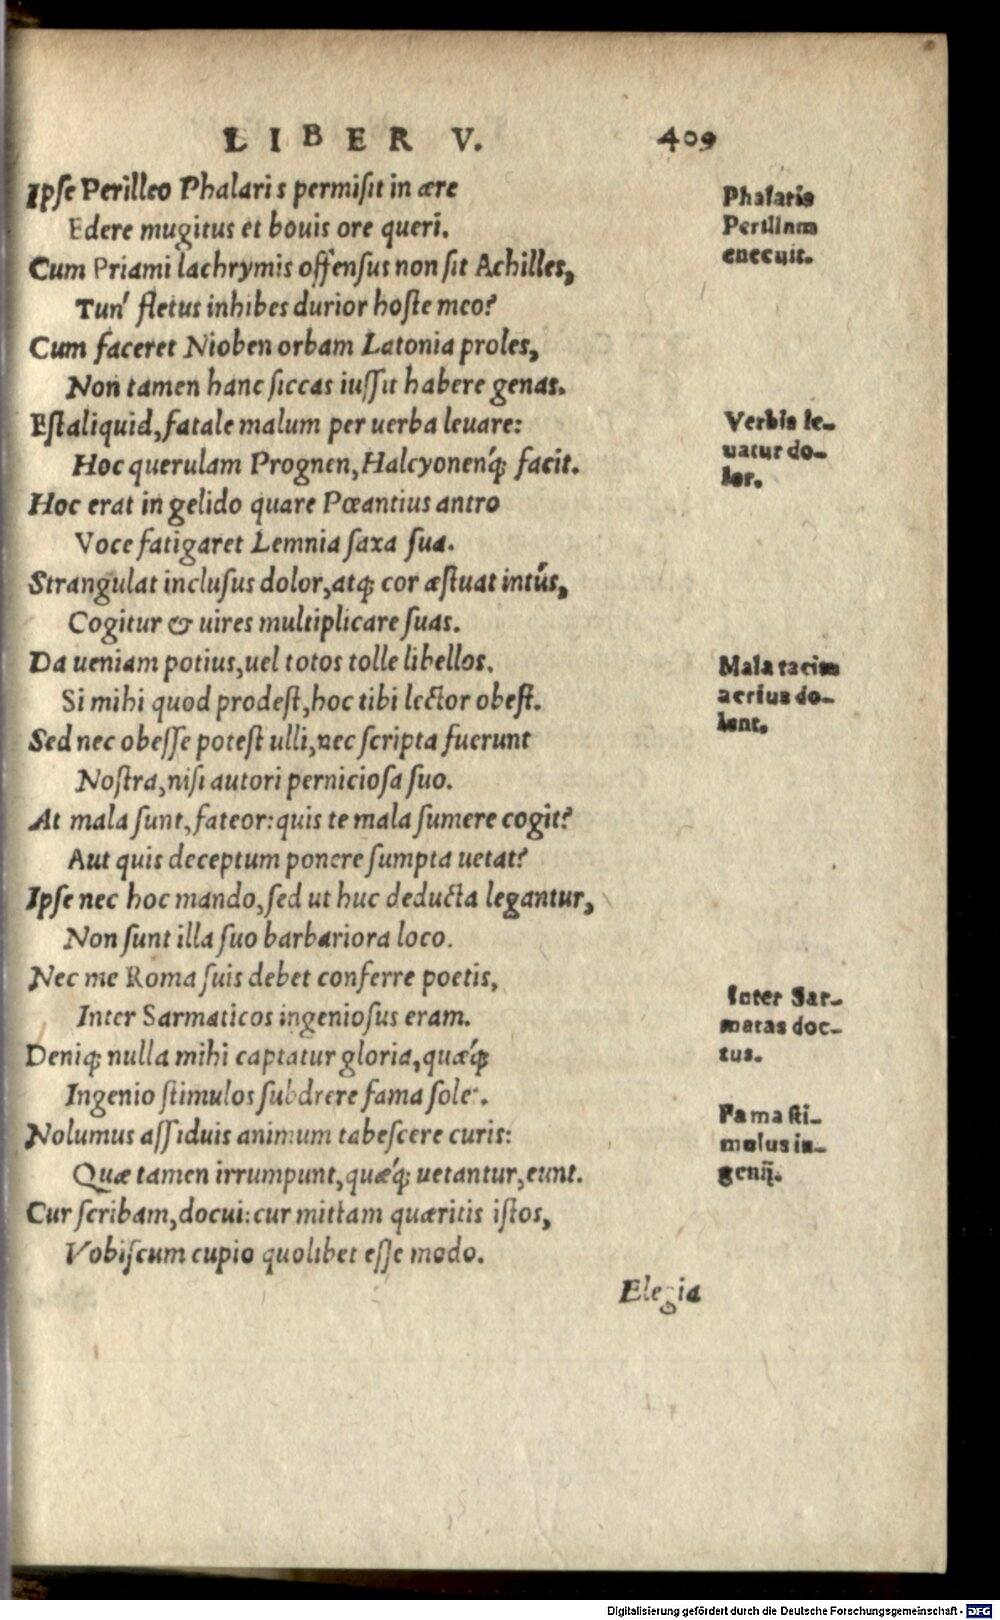 LIBER V. 409
Ipse Perilleo Phalaris permisit in ære
Edere mugitus et bouis ore queri.
Cum Priami lachrymis offensus non sit Achilles,
Tun' fletus inhibes durior hoste meo?
Cum faceret Nioben orbam Latonia proles,
Non tamen hanc siccas iussit habere genas.
Est aliquid, fatale malum per uerba leuare:
Hoc querulam Prognen, Halcyonenq́; facit.
Hoc erat in gelido quare Pœantius antro
Voce fatigaret Lemnia saxa sua.
Strangulat inclusus dolor, atq; cor æstuat intús,
Cogitur & uires multiplicare suas.
Da ueniam potius, uel totos tolle libellos.
Si mihi quod prodest, hoc tibi lector obest.
Sed nec obesse potest ulli, nec scripta fuerunt
Nostra, nisi autori perniciosa suo.
At mala sunt, fateor: quis te mala sumere cogit?
Aut quis deceptum ponere sumpta uetat?
Ipse nec hoc mando, sed ut huc deducta legantur,
Non sunt illa suo barbariora loco.
Nec me Roma suis debet conferre poetis,
Inter Sarmaticos ingeniosus eram.
Deniq; nulla mihi captatur gloria, quæq́;
Ingenio stimulos subdrere fama solet.
Nolumus assiduis animum tabescere curis:
Quæ tamen irrumpunt, quæq́; uetantur, eunt.
Cur scribam, docui: cur mittam quæritis istos,
Vobiscum cupio quolibet esse modo.
Elegia
Phalaris
Perillum
enecuit.
Verbis le-
uatur do-
lor.
Mala tacita
acrius do-
lent.
Inter Sar-
matas doc-
tus.
Fama sti-
mulus in-
genij.
Digitalisierung gefördert durch die Deutsche Forschungsgemeinschaft - DFG